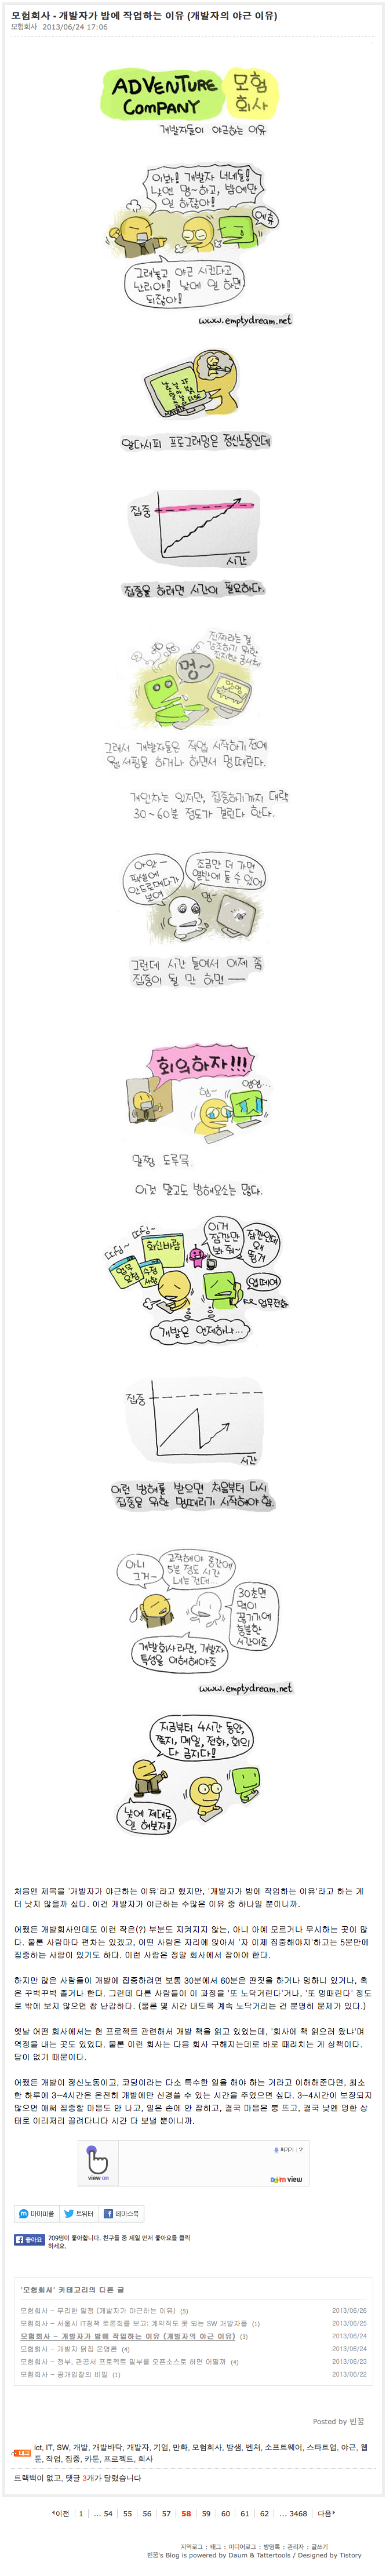 모험회사 - 개발자가 밤에 작업하는 이유 (개발자의 야근 이유)
모험회사 2013/06/24 17:06
ADVENTURE COMPANY
모험 회사
개발자들이 야근하는 이유
이봐! 개발자 너네들!
낮엔 멍~하고, 밤에만
일 하잖아!
에휴
그래놓고 야근 시킨다고
난리야! 낮에 일 하면
되잖아!
www.emptydream.net
알다시피 프로그래밍은 정신노동인데
집중
시간
집중을 하려면 시간이 필요하다.
멍~
그래서 개발자들은 작업 시작하기 전에
웹 서핑을 하거나 하면서 멍때린다.
개인차는 있지만, 집중하기까지 대략
30~60분 정도가 걸린다 한다.
조금만 더 가면
열반에 들 수 있어
멍~
그런데 시간 들여서 이제 좀
집중이 될 만 하면 ──
회의하자!!!
말짱 도루묵.
이것 말고도 방해요소는 많다.
이거
잠깐만
봐 줘~
개발은 언제하나...
집중
시간
이런 방해를 받으면 처음부터 다시
집중을 위한 멍때리기 시작해야 함.
아니
그거~
고작해야 중간에
5분 정도 시간
내는건데...
30초면
맥이
끊기기에
충분한
시간이죠
개발회사라면, 개발자
특성을 이해해야죠
www.emptydream.net
지금부터 4시간 동안,
쪽지, 메일, 전화, 회의
다 금지다!
낮에 제대로
일 해보자!
처음엔 제목을 '개발자가 야근하는 이유'라고 했지만, '개발자가 밤에 작업하는 이유'라고 하는 게
더 낫지 않을까 싶다. 이건 개발자가 야근하는 수많은 이유 중 하나일 뿐이니까.
어쨌든 개발회사인데도 이런 작은(?) 부분도 지켜지지 않는, 아니 아예 모르거나 무시하는 곳이 많
다. 물론 사람마다 편차는 있겠고, 어떤 사람은 자리에 앉아서 '자 이제 집중해야지'하고는 5분만에
집중하는 사람이 있기도 하다. 이런 사람은 정말 회사에서 잡아야 한다.
하지만 많은 사람들이 개발에 집중하려면 보통 30분에서 60분은 딴짓을 하거나 멍하니 있거나, 혹
은 꾸벅꾸벅 졸거나 한다. 그런데 다른 사람들이 이 과정을 '또 노닥거린다'거나, '또 멍때린다' 정도
로 밖에 보지 않으면 참 난감하다. (물론 몇 시간 내도록 계속 노닥거리는 건 분명히 문제가 있다.)
옛날 어떤 회사에서는 현 프로젝트 관련해서 개발 책을 읽고 있었는데, '회사에 책 읽으러 왔냐'며
역정을 내는 곳도 있었다. 물론 이런 회사는 다음 회사 구해지는데로 바로 때려치는 게 상책이다.
답이 없기 때문이다.
어쨌든 개발이 정신노동이고, 코딩이라는 다소 특수한 일을 해야 하는 거라고 이해해준다면, 최소
한 하루에 3~4시간은 온전히 개발에만 신경쓸 수 있는 시간을 주었으면 싶다. 3~4시간이 보장되지
않으면 애써 집중할 마음도 안 나고, 일은 손에 안 잡히고, 결국 마음은 붕 뜨고, 결국 낮엔 멍한 상
태로 이리저리 끌려다니다 시간 다 보낼 뿐이니까.
view on
퍼가기 ?
Daum view
마이피플 트위터 페이스북
좋아요 709명이 좋아합니다. 친구들 중 제일 먼저 좋아요를 클릭
하세요.
'모험회사' 카테고리의 다른 글
모험회사 - 무리한 일정 (개발자가 야근하는 이유) (5) 2013/06/26
모험회사 - 서울시 IT정책 토론회를 보고: 계약직도 못 되는 SW 개발자들 (1) 2013/06/25
모험회사 - 개발자가 밤에 작업하는 이유 (개발자의 야근 이유) (3) 2013/06/24
모험회사 - 개발자 닭집 운명론 (4) 2013/06/24
모험회사 - 정부, 관공서 프로젝트 일부를 오픈소스로 하면 어떨까 (4) 2013/06/23
모험회사 - 공개입찰의 비밀 (1) 2013/06/22
Posted by 빈꿈
ict, IT, SW, 개발, 개발바닥, 개발자, 기업, 만화, 모험회사, 밤샘, 벤처, 소프트웨어, 스타트업, 야근, 웹
툰, 작업, 집중, 카툰, 프로젝트, 회사
트랙백이 없고, 댓글 3개가 달렸습니다
이전 1 ... 54 55 56 57 58 59 60 61 62 ... 3468 다음
지역로그 : 태그 : 미디어로그 : 방명록 : 관리자 : 글쓰기
빈꿈's Blog is powered by Daum & Tattertools / Designed by Tistory